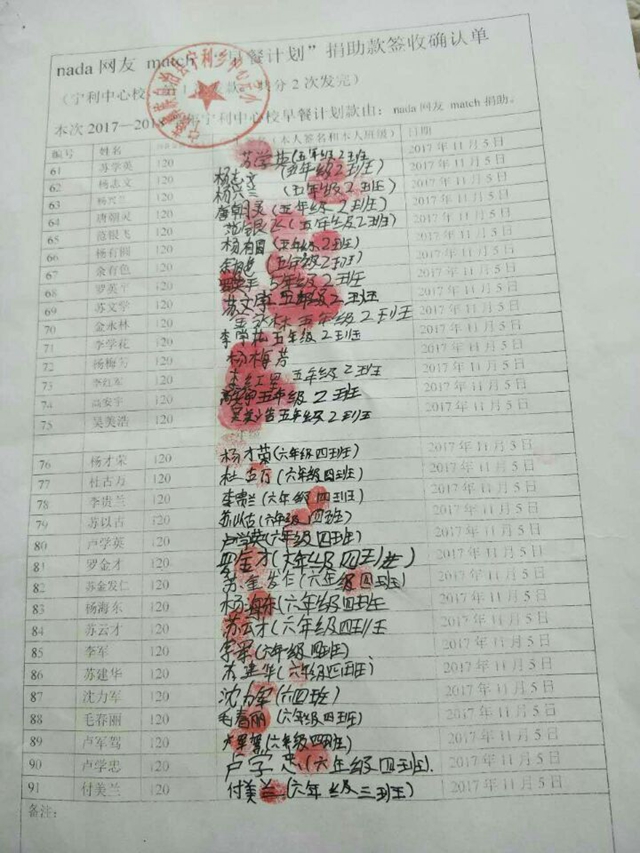 nada 网友 match “早餐计划”捐助款签收确认单
（宁利中心校 款 分 2 次发完）
本次 2017—201 宁利中心校早餐计划款由：nada 网友 match 捐助。
编号 姓名 （本人签名和本人班级） 日期
61 苏学英 120 苏学英（五年级2班） 2017年11月5日
62 杨志文 120 杨志文（五年级2班） 2017年11月5日
63 杨兴兰 120 杨兴兰（五年级2班） 2017年11月5日
64 唐朝灵 120 唐朝灵（五年级2班） 2017年11月5日
65 范银飞 120 范银飞（五年级2班） 2017年11月5日
66 杨有圆 120 杨有圆（五年级2班） 2017年11月5日
67 余有色 120 （五年级2班） 2017年11月5日
68 罗英平 120 5年级2班 2017年11月5日
69 苏文学 120 苏文 五年级2班 2017年11月5日
70 金永林 120 金永林 五年级2班 2017年11月5日
71 李学花 120 李学花 五年级2班 2017年11月5日
72 杨梅芳 120 杨梅芳 2017年11月5日
73 李红军 120 五年级2班 2017年11月5日
74 高安宇 120 五年级2班 2017年11月5日
75 吴美浩 120 吴美浩 五年级2班 2017年11月5日
76 杨才荣 120 杨才荣（六年级四班） 2017年11月5日
77 杜古万 120 杜古万（六年级四班） 2017年11月5日
78 李贵兰 120 李贵兰（六年级四班） 2017年11月5日
79 苏以古 120 苏以古（六年级四班） 2017年11月5日
80 卢学英 120 卢学英（六年级四班） 2017年11月5日
81 罗金才 120 罗金才（六年级四班） 2017年11月5日
82 苏金发仁 120 苏金发仁（六年级四班） 2017年11月5日
83 杨海东 120 杨海东（六年级四班 2017年11月5日
84 苏云才 120 苏云才（六年级四班 2017年11月5日
85 李军 120 李军（六年级四班） 2017年11月5日
86 苏建华 120 苏建华（六年级四班） 2017年11月5日
87 沈力军 120 沈力军（六四班） 2017年11月5日
88 毛春丽 120 毛春丽（六年级四班） 2017年11月5日
89 卢军驾 120 （六年级四班） 2017年11月5日
90 卢学忠 120 卢学忠（六年级四班）. 2017年11月5日
91 付美兰 120 付美兰（六年级三班） 2017年11月5日
备注：